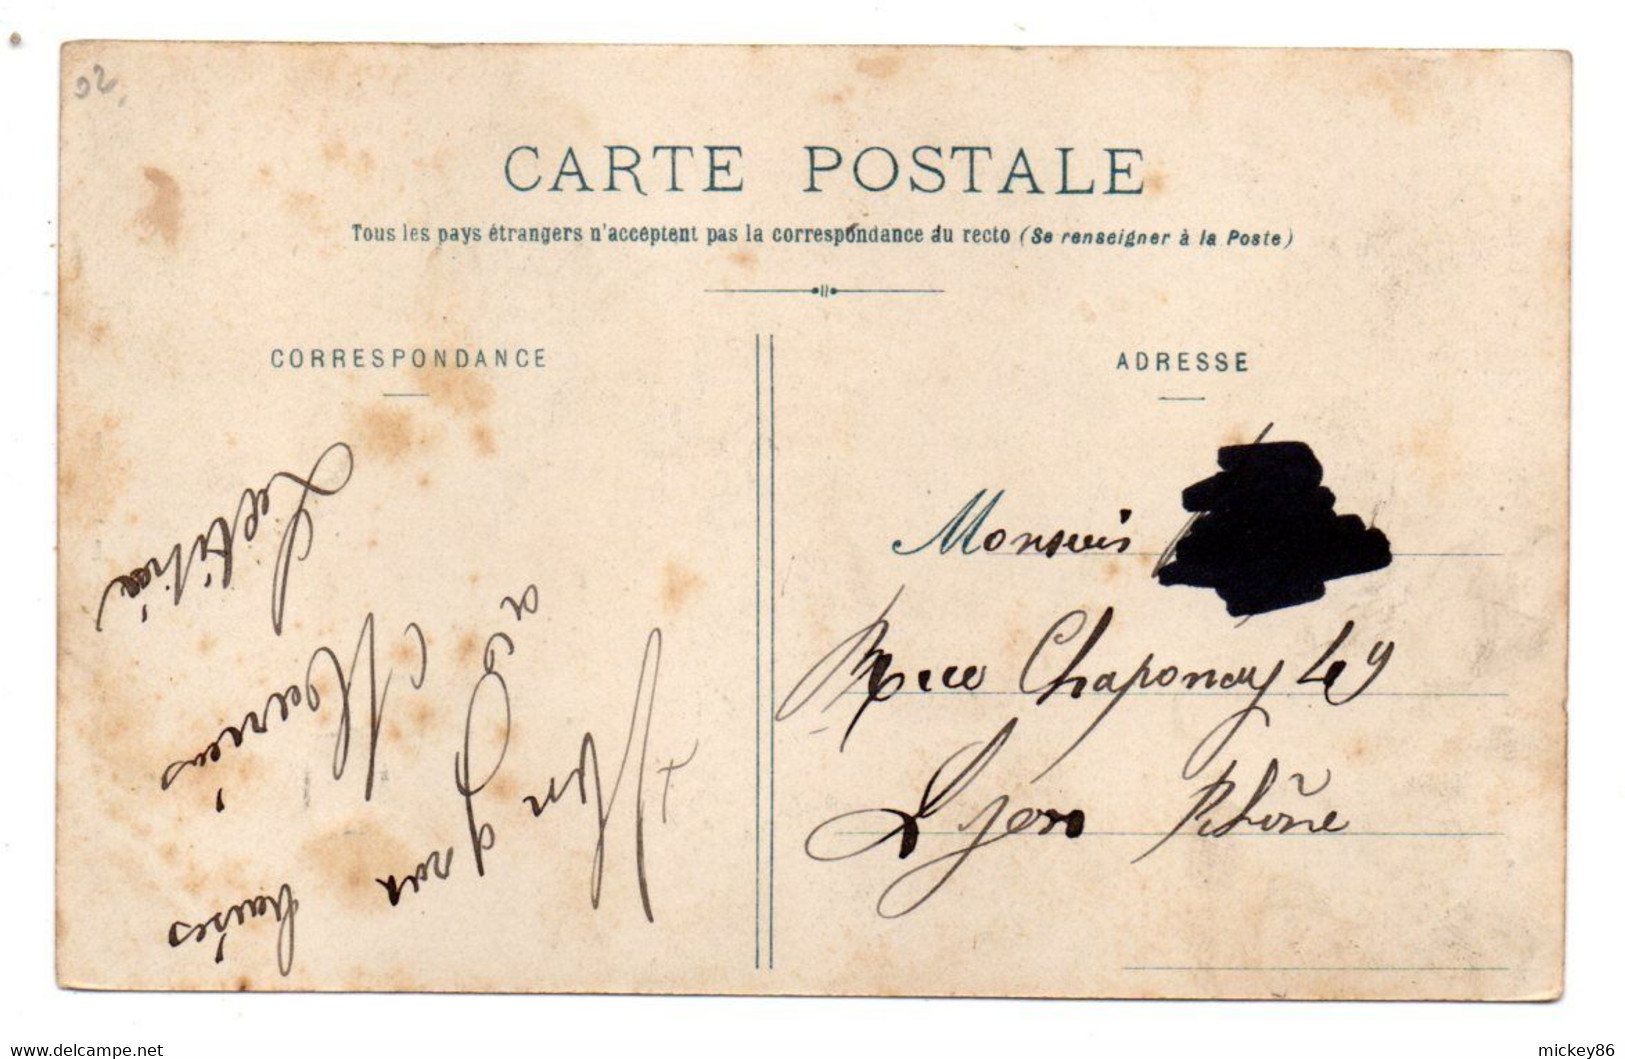 92
CARTE POSTALE
Tous les pays étrangers n'acceptent pas la correspondance du recto (Se renseigner à la Poste)
CORRESPONDANCE
ADRESSE
Un gros baisés
a Marius
Laetitia
Monsuis
Rue Chaponay 49
Lyon Rhône
www.delcampe.net
mickey86